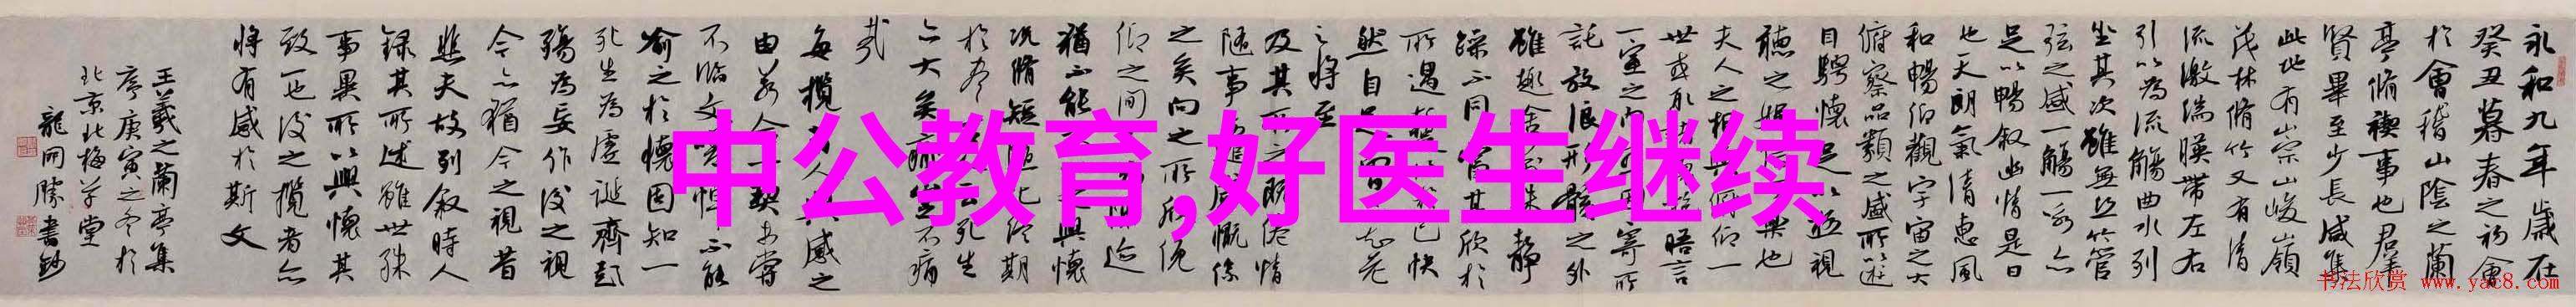 中公教育,好医生继续
永和九年歲在
癸丑暮春之初會
於會稽山陰之蘭
亭脩禊事也群
賢畢至少長咸集
此地有崇山峻嶺
茂林脩竹又有清
流激湍暎帶左右
引以為流觴曲水列
坐其次雖無絲竹管
弦之盛一觴一詠亦
足以暢敘幽情是日
也天朗氣清惠風
和暢仰觀宇宙之大
俯察品類之盛所以遊
目騁懷足以極視
聽之娛樂也
夫人之相與俯仰一
世或取晤言
一室之內寄所
託放浪形骸之外
雖趣舍殊靜
躁不同當其欣於
所遇快
然自足老
之將至
及其所之既倦情
隨事遷感慨係
之矣向之所欣俛
仰之間
猶不能以之興懷
況脩短終期
於盡死生
亦大矣不痛
哉
每攬人興感之
由若合一契未嘗
不臨文嗟悼不能
喻之於懷固知一
死生為虛誕齊彭
殤為妄作後之視
今亦猶今之視昔
悲夫故列敘時人
錄其所述雖世殊
事異所以興懷其
致一也後之攬者亦
將有感於斯文
王羲之蘭亭集
序庚寅之冬於
北京北梅草堂
龍開勝書鈔
书法欣赏 www.yac8.com